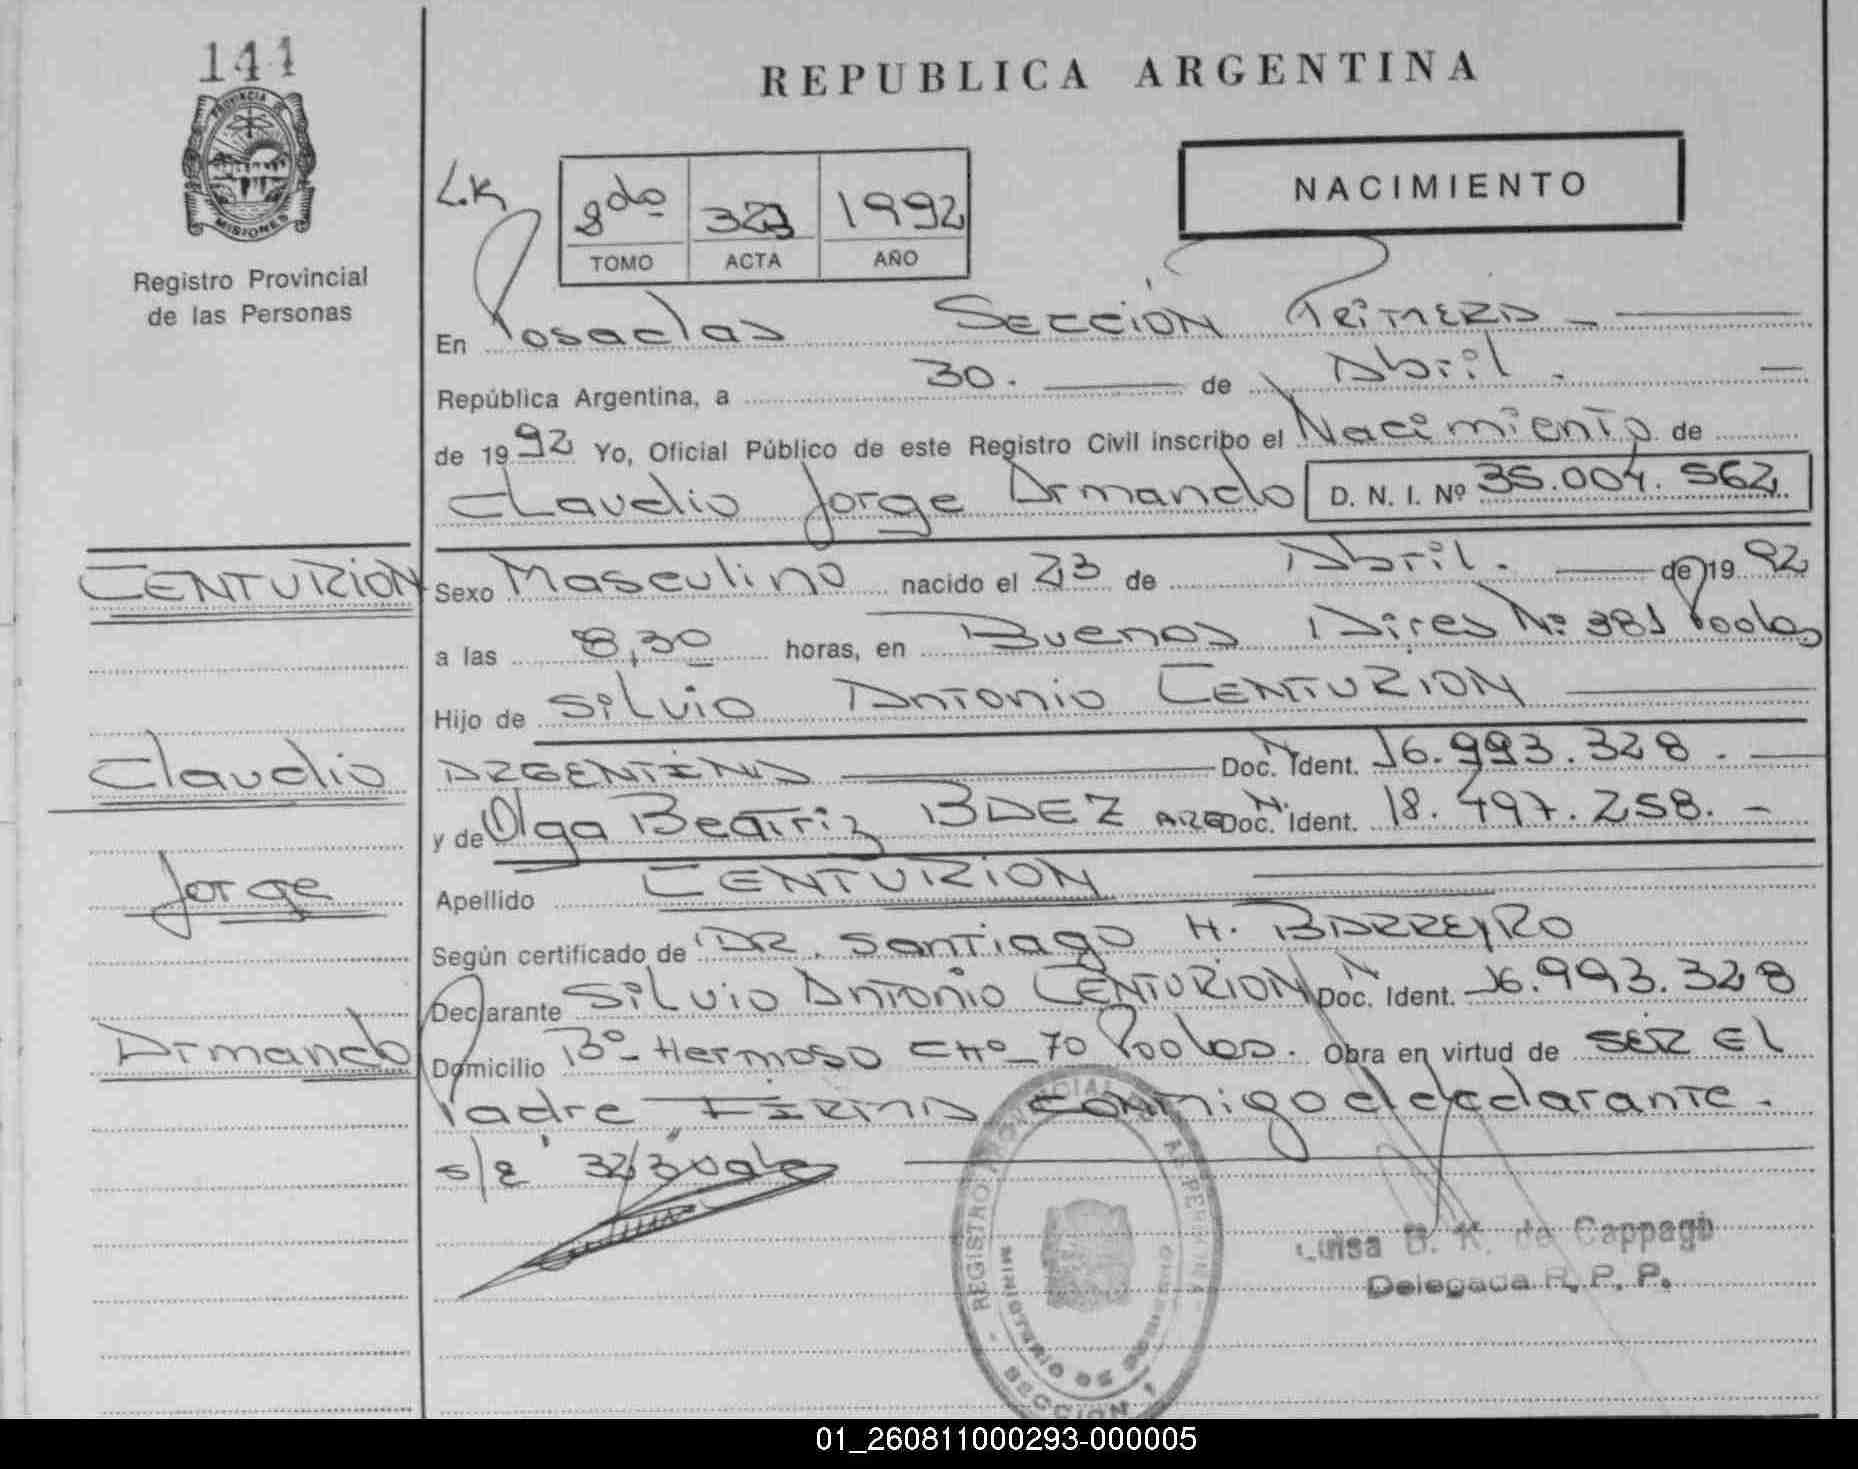 141
PROVINCIA DE
MISIONES
Registro Provincial
de las Personas
REPUBLICA ARGENTINA
NACIMIENTO
L.K
2do 323 1992
TOMO ACTA AÑO
En Posadas Sección Primera
República Argentina, a 30. de Abril.
de 1992 Yo, Oficial Público de este Registro Civil inscribo el Nacimiento de
Claudio Jorge Armando D. N. I. Nº 35.004.562
CENTURION
Claudio
Jorge
Armando
Sexo Masculino nacido el 23 de Abril. de 1992
a las 8,30 horas, en Buenos Aires Nº 381 Pdas
Hijo de Silvio Antonio CENTURION
ARGENTINA Doc. Ident. 16.993.328.
y de Olga Beatriz BAEZ ARG Doc. Ident. 18.497.258.
Apellido CENTURION
Según certificado de DR. Santiago H. BARREYRO
Declarante Silvio Antonio CENTURION Doc. Ident. 16.993.328
Domicilio Bº Hermoso CHº 70 Pdas. Obra en virtud de SER El
Padre FIRMA conmigo el declarante.
s/e "323" vale
REGISTRO PROVINCIAL DE LAS PERSONAS
MINISTERIO DE GOBIERNO
SECCION 1
Luisa B. K. de Cappagli
Delegada R. P. P.
01_260811000293-000005